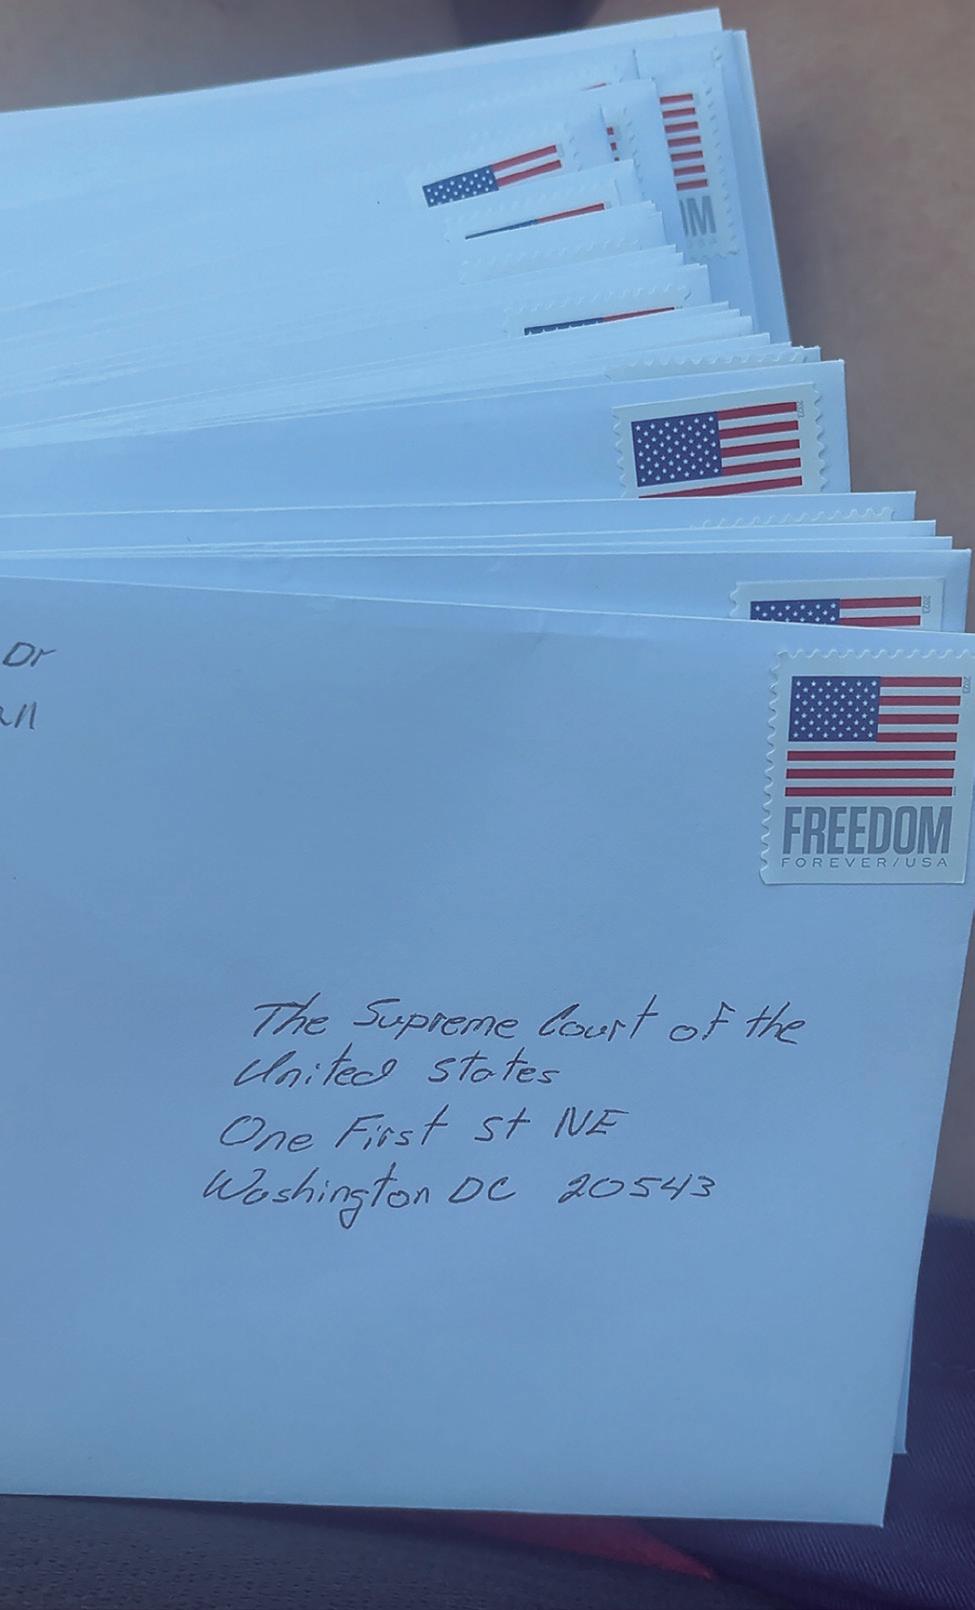 Dr
2023
2023
2023
OM
FREEDOM
FOREVER/USA
The Supreme Court of the
United States
One First St NE
Washington DC 20543